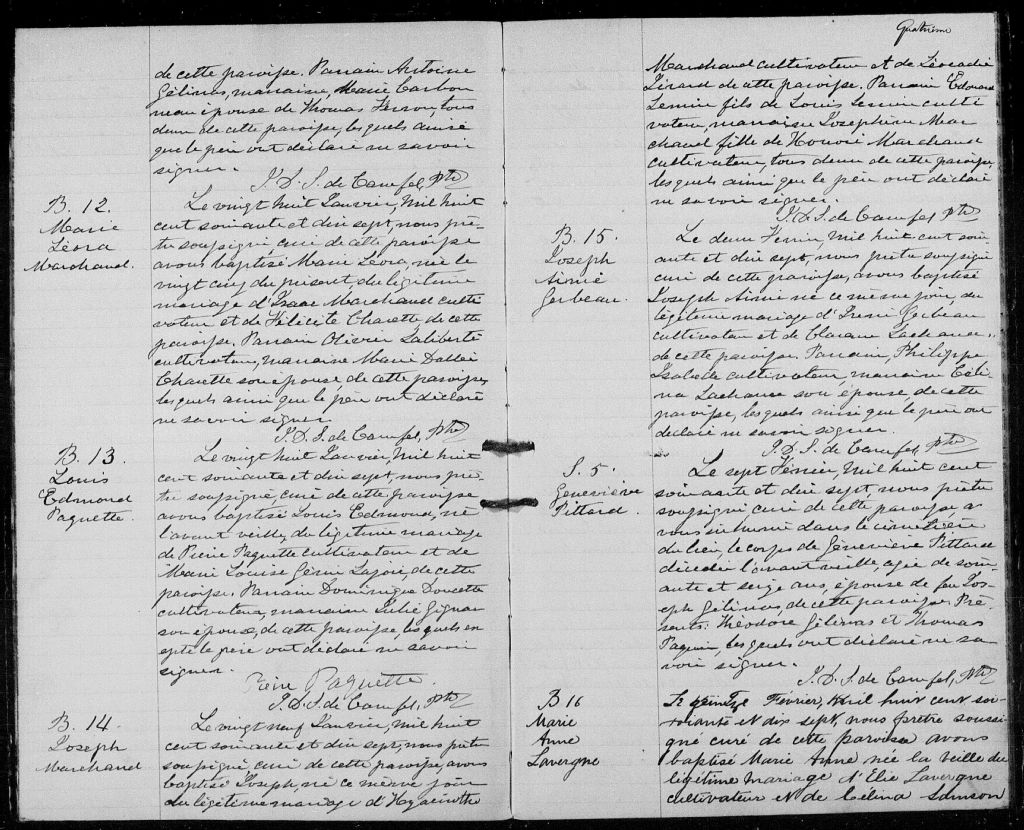 de cette paroisse. Parrain Antoine
Gélinas, marraine, Marie Carbon
neau épouse de Thomas Ferron, tous
deux de cette paroisse, lesquels ainsi
que le père ont déclaré ne savoir
signer.
J. D. S. de Camfel, Ptre
B. 12.
Marie
Léora
Marchand.
Le vingt huit Janvier, Mil huit
cent soixante et dix sept, nous prê-
tre soussigné, curé de cette paroisse
avons baptisé Marie Léora, née le
vingt cinq du présent, du légitime
mariage d'Isaac Marchand culti
vateur et de Félicité Charette de cette
paroisse. Parrain Olivier Laliberté
cultivateur, marraine Marie
Charette son épouse, de cette paroisse,
lesquels ainsi que le père ont déclaré
ne savoir signer.
J. D. S. de Camfel, Ptre
B. 13.
Louis
Edmond
Paquette.
Le vingt huit Janvier, Mil huit
cent soixante et dix sept, nous prê-
tre soussigné, curé de cette paroisse
avons baptisé Louis Edmond, né
l'avant veille, du légitime mariage
de Pierre Paquette cultivateur et de
Marie Louise Gérin Lajoie, de cette
paroisse. Parrain Dominique Doucette
cultivateur, marraine Julie Gignac
son épouse, de cette paroisse, lesquels ex
cepté le père ont déclaré ne savoir
signer.
Pierre Paquette.
J. D. S. de Camfel, Ptre
B. 14.
Joseph
Marchand
Le vingt neuf Janvier, Mil huit
cent soixante et dix sept, nous prêtre
soussigné, curé de cette paroisse, avons
baptisé Joseph, né ce même jour
du légitime mariage d'Hyacinthe
Quatrième
Marchand cultivateur et de Léocadie
Girard de cette paroisse. Parrain Edouard
Lessin fils de Louis Lessin culti
vateur, marraine Josephine Mar
chand fille de Honoré Marchand
cultivateur, tous deux de cette paroisse,
lesquels ainsi que le père ont déclaré
ne savoir signer.
J. D. S. de Camfel, Ptre
B. 15.
Joseph
Aimé
Gerbeau.
Le deux Fevrier, Mil huit cent soix-
ante et dix sept, nous prêtre soussigné
curé de cette paroisse, avons baptisé
Joseph Aimé né ce même jour, du
légitime mariage d'Irené Gerbeau
cultivateur et de Lachance,
de cette paroisse. Parrain, Philippe
Isabelle cultivateur marraine Céli
na Lachance son épouse, de cette
paroisse, lesquels ainsi que le père ont
déclaré ne savoir signer.
J. D. S. de Camfel, Ptre
S. 5.
Geneviève
Pittard.
Le sept Février, Mil huit cent
soixante et dix sept, nous prêtre
soussigné curé de cette paroisse a
vons inhumé dans le cimetière
du lieu, le corps de Géneviève Pittard
décédée l'avant veille, agée de soix-
ante et seize ans, épouse de feu Jos-
eph Gélinas, de cette paroisse. Pré-
sents: Théodore Gélinas et Thomas
Paquin, lesquels ont déclaré ne sa
voir signer.
J. D. S. de Camfel, Ptre
B 16
Marie
Anne
Lavergne
Le quinze Février, Mil huit cent soi-
xante et dix sept, nous prêtre soussi
gné curé de cette paroisse avons
baptisé Marie Anne née la veille du
légitime mariage d'Elie Lavergne
cultivateur et de Célina Samson